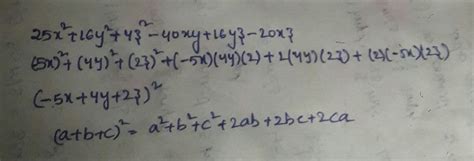 25x²+16y²+4z²-40xy+16yz-20xz
(5x)²+(4y)²+(2z)²+(-5x)(4y)(2)+2(4y)(2z)+(2)(-5x)(2z)
(-5x+4y+2z)²
(a+b+c)²= a²+b²+c²+2ab+2bc+2ca